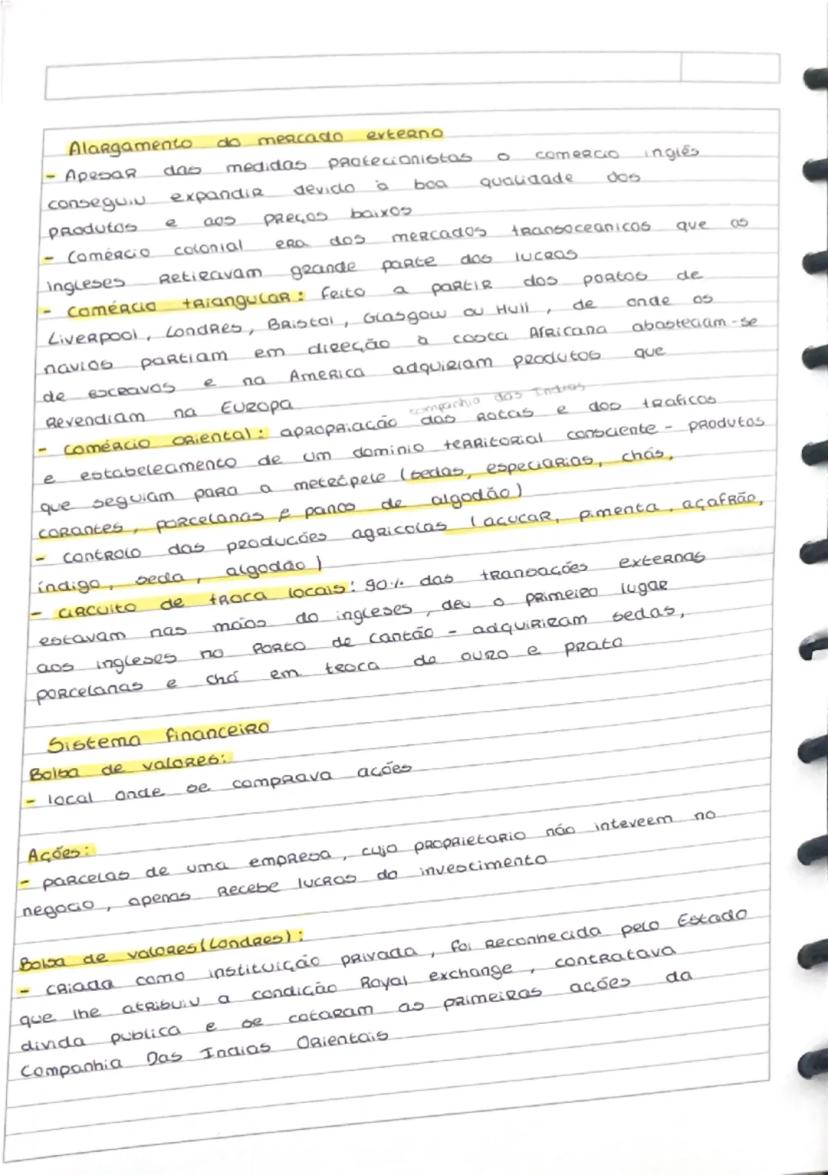 Alargamento do mercado externo
- Apesar das medidas protecionistas o comercio inglês
conseguiu expandir devido à boa qualidade dos
produtos e aos preços baixos
- Comércio colonial era dos mercados transoceanicos que os
ingleses retiravam grande parte dos lucros
- comércio triangular: feito a partir dos portos de
Liverpool, Londres, Bristol, Glasgow ou Hull, de onde os
navios partiam em direção à costa Africana abasteciam-se
de escravos e na America adquiriam produtos que
Revendiam na Europa
companhia das Indias
- comércio oriental: apropriação das rotas e dos traficos
e estabelecimento de um dominio territorial consciente - produtos
que seguiam para a metrépele (sedas, especiarias, chás,
corantes, porcelanas e panos de algodão)
- controlo das produções agricolas (açucar, pimenta, açafrão,
índigo, seda, algodão)
- circuito de troca locais: 90% das transações externas
estavam nas mãos do ingleses, deu o primeiro lugar
aos ingleses no Porto de Cantão - adquiriram sedas,
porcelanas e chá em troca de ouro e prata
Sistema financeiro
Bolsa de valores:
- local onde se comprava ações
Ações:
- parcelas de uma empresa, cujo proprietario não inteveem no
negocio, apenas recebe lucros do investimento
Bolsa de valores (Londres):
- criada como instituição privada, foi reconhecida pelo Estado
que lhe atribuiu a condição Royal exchange, contratava
divida publica e se cotaram as primeiras ações da
Companhia Das Indias Orientais